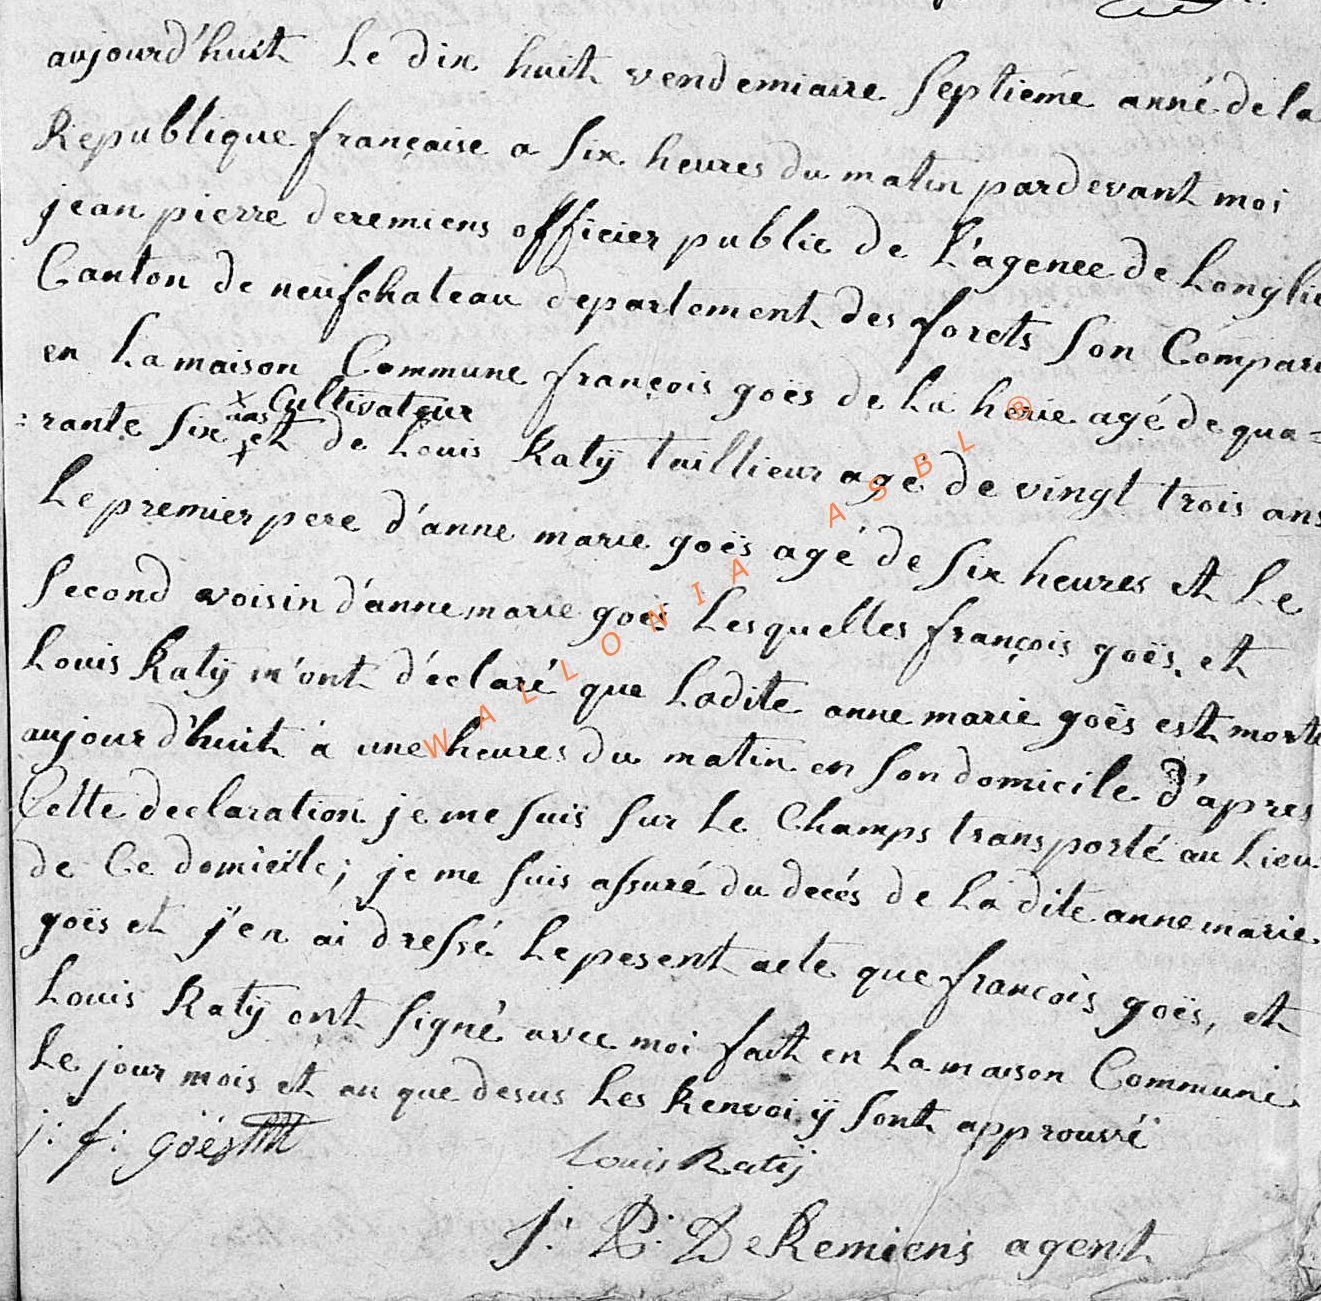 aujourd'huit Le dix huit vendemiaire Septieme anné de la
Republique française a Six heures du matin pardevant moi
jean pierre deremiens officier public de L'agence de Longlie
Canton de neufchateau departement des forets Son Comparu
en La maison Commune françois goës de La herie agé de qua=
x Cultivateur
:rante Six ans et de Louis Raty taillieur agé de vingt trois ans
Le premier pere d'anne marie goës agé de Six heures et Le
Second voisin d'anne marie goës Lesquelles françois goës, et
Louis Raty m'ont déclaré que Ladite anne marie goës est morte
aujourd'huit á une heures du matin en Son domicile d'apres
Cette declaration je me Suis Sur Le Champs transporté au Lieu
de Ce domicile; je me Suis assuré du decés de La dite anne marie
goës et j'en ai dressé Le pesent acte que françois goës, et
Louis Raty ont Signé avec moi fait en La maison Communé
Le jour mois et an que desus Les Renvoi ÿ Sont approuvé
j: f: goës
Louis Raty
J: P: DeRemiens agent
WALLONIA ASBL ®